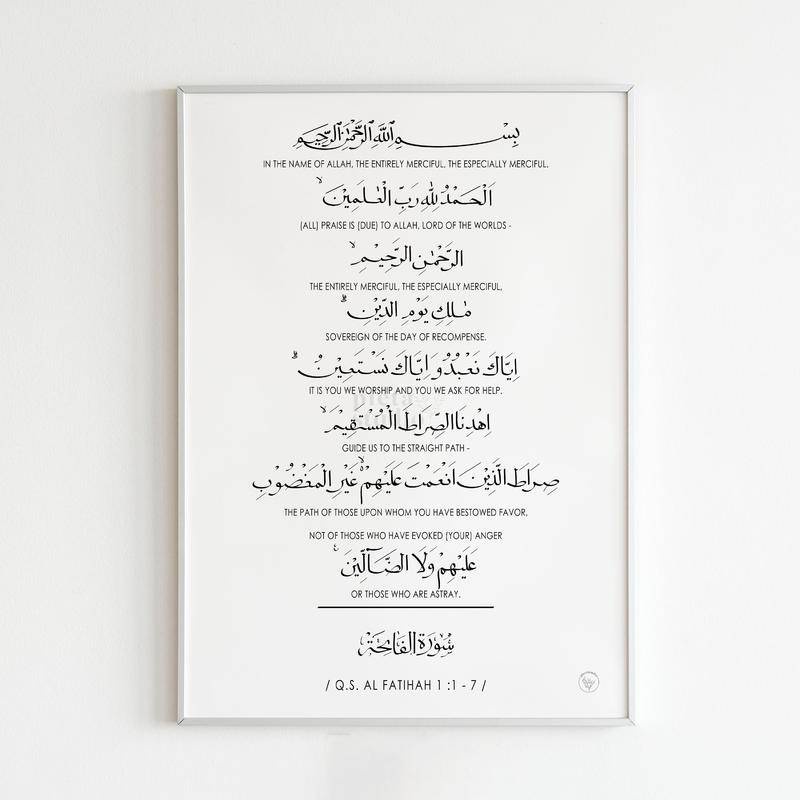 بِسْمِ اللّٰهِ الرَّحْمٰنِ الرَّحِيْمِ
IN THE NAME OF ALLAH, THE ENTIRELY MERCIFUL, THE ESPECIALLY MERCIFUL.
اَلْحَمْدُ لِلّٰهِ رَبِّ الْعٰلَمِيْنَۙ
(ALL) PRAISE IS (DUE) TO ALLAH, LORD OF THE WORLDS -
الرَّحْمٰنِ الرَّحِيْمِۙ
THE ENTIRELY MERCIFUL, THE ESPECIALLY MERCIFUL,
مٰلِكِ يَوْمِ الدِّيْنِۗ
SOVEREIGN OF THE DAY OF RECOMPENSE.
اِيَّاكَ نَعْبُدُ وَاِيَّاكَ نَسْتَعِيْنُۗ
IT IS YOU WE WORSHIP AND YOU WE ASK FOR HELP.
اِهْدِنَا الصِّرَاطَ الْمُسْتَقِيْمَۙ
GUIDE US TO THE STRAIGHT PATH -
صِرَاطَ الَّذِيْنَ اَنْعَمْتَ عَلَيْهِمْ ۙ غَيْرِ الْمَغْضُوْبِ
THE PATH OF THOSE UPON WHOM YOU HAVE BESTOWED FAVOR,
NOT OF THOSE WHO HAVE EVOKED (YOUR) ANGER
عَلَيْهِمْ وَلَا الضَّاۤلِّيْنَۙ
OR THOSE WHO ARE ASTRAY.
سُوْرَةُ الْفَاتِحَة
/ Q.S. AL FATIHAH 1 :1 - 7 /